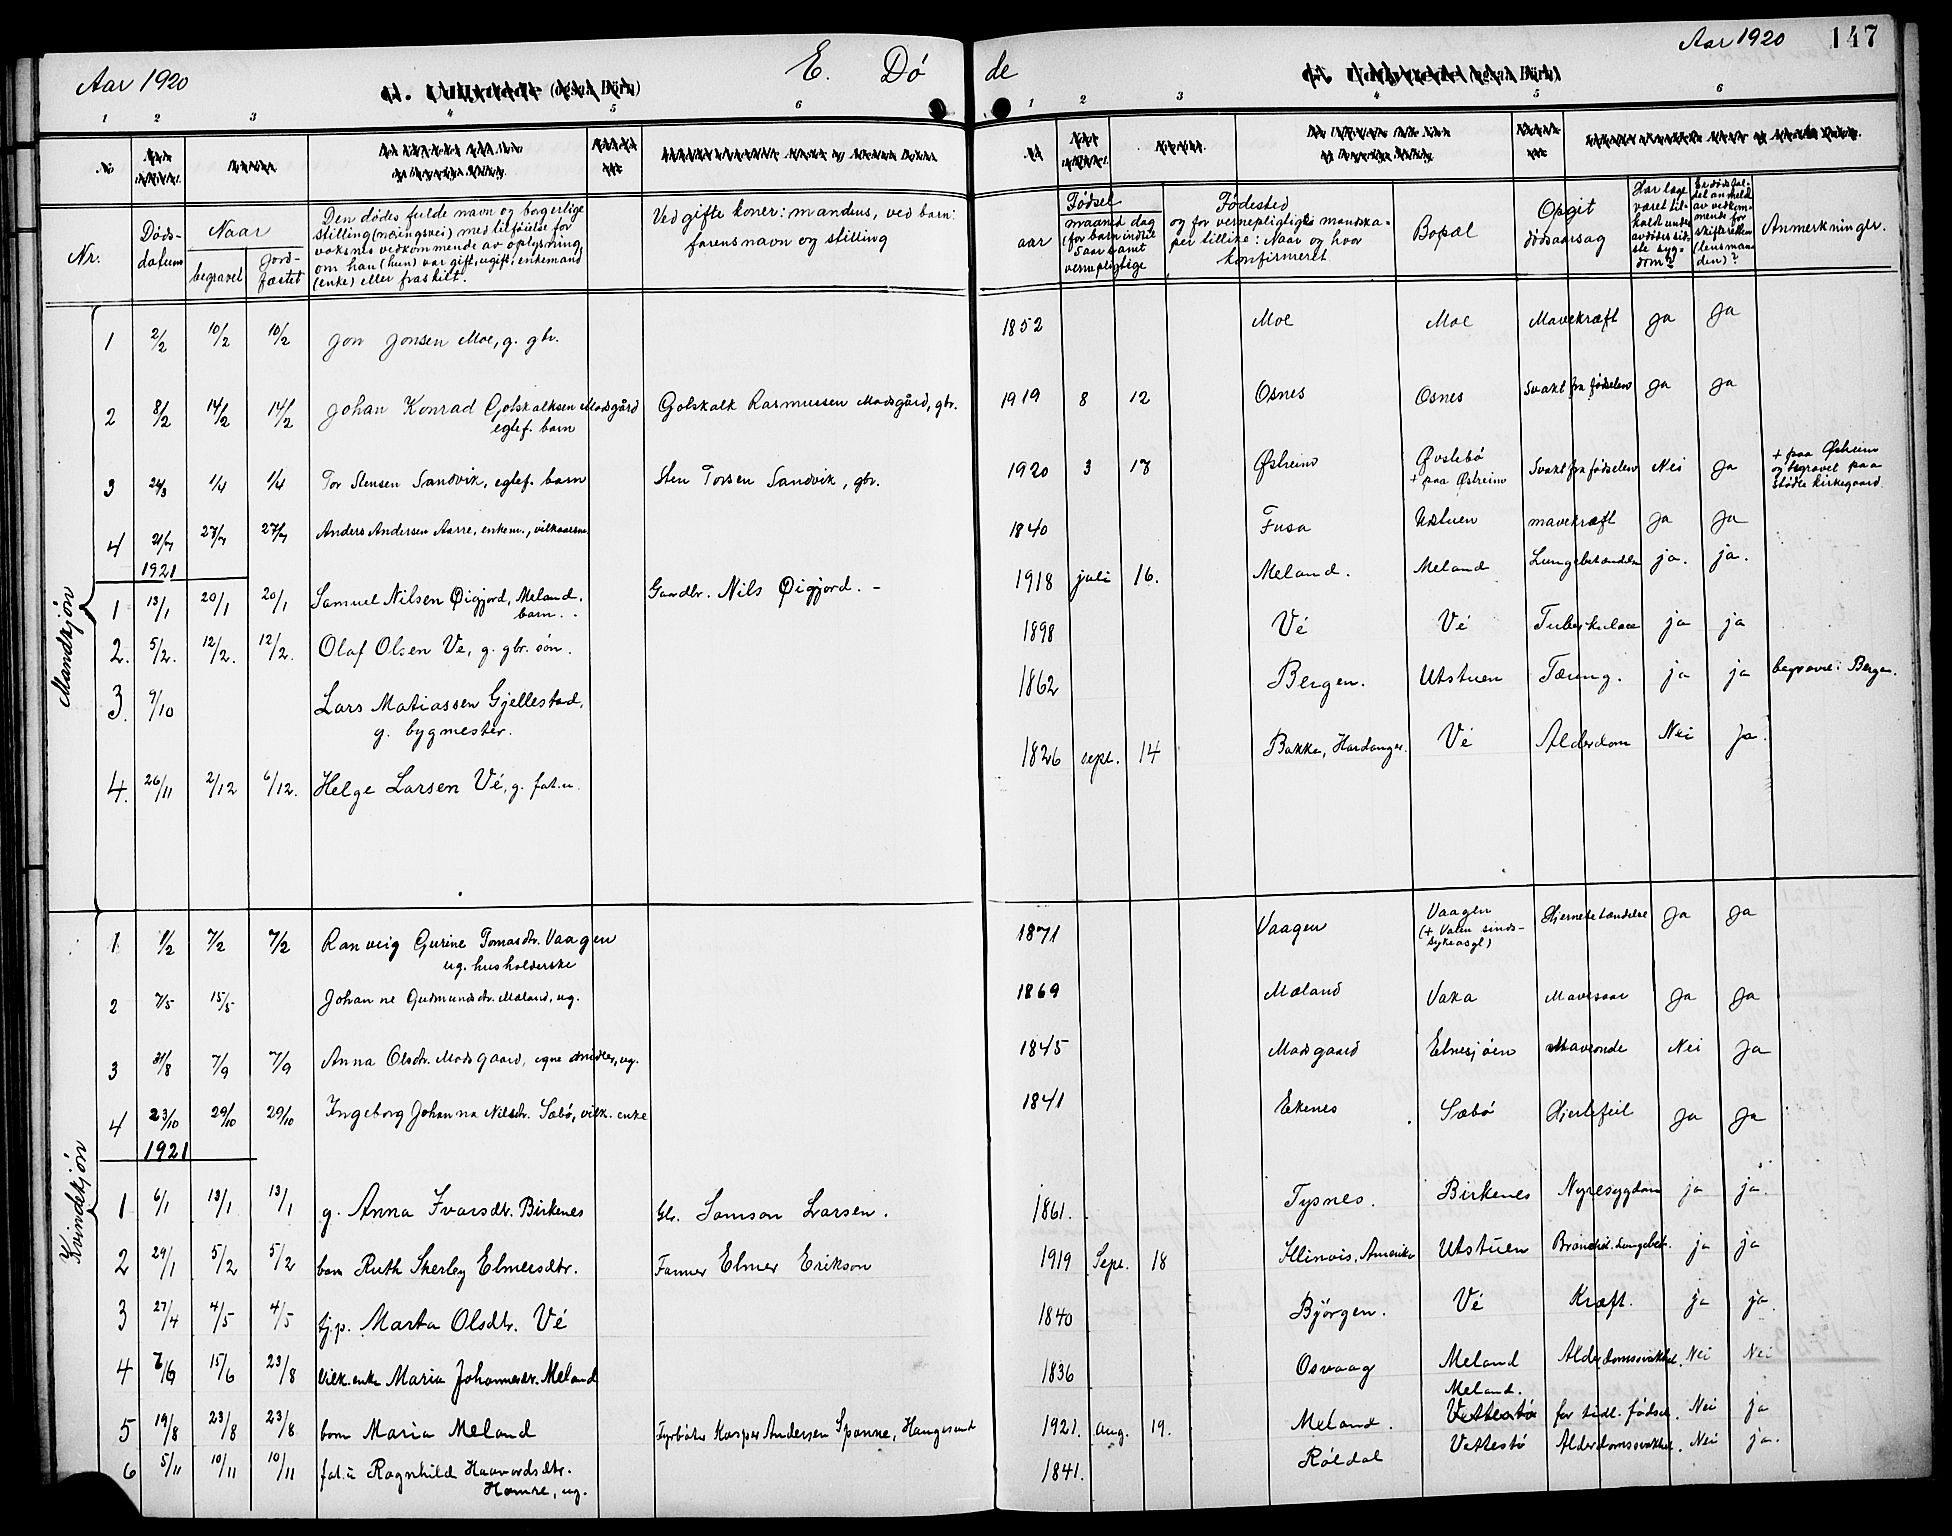 Aar 1920
E. Dö
de
Aar 1920 147
(ogsaa Börn)
(ogsaa Börn)
1 2 3 4 5 6
1 2 3 4 5 6
Nr.
Døds-
datum
Naar
begravet
jord-
fæstet
Den dødes fulde navn og borgerlige
stilling (næringsvei) med tilføielse for
voksnes vedkommende av oplysning,
om han (hun) var gift, ugift, enkemand
(enke) eller fraskilt.
Ved gifte koner: mandens, ved barn:
farens navn og stilling
Fødsel
aar
maaned dag
(for barn indtil
5 aar samt
vernepligtige
Fødested
og for vernepligtige mandska-
per tillike: Naar og hvor
konfirmeret
Bopæl
Opgit
dødsaarsag
Har læge
været til-
kaldt under
avdødes sid-
ste syg-
dom?
Er dødsfal-
det anmeldt
av vedkom-
mende for
skifteretten
(lensman-
den)?
Anmerkninger.
Mandkjøn
1 2/2 10/2 10/2 Jon Jonsen Moe, g. gbr. 1852 Moe Moe Mavekræft Ja Ja
2 8/2 14/2 14/2 Johan Konrad Golskalksen Madsgård Golskalk Rasmussen Madsgård, gbr. 1919 8 12 Osnes Osnes Svakt fra fødselen Ja Ja
egtef. barn
3 24/3 1/4 1/4 Tor Stensen Sandvik, egtef. barn Sten Torsen Sandvik, gbr. 1920 3 17 Østreim Øvstebö Svakt fra fødselen Nei Ja + paa Østreim
+ paa Østreim og begravet paa
Stødle kirkegaard.
4 27/7 27/7 Anders Andersen Aarre, enkem., vilkaarsm. 1840 Fusa Utstuen mavekræft Ja Ja
1921
1 13/1 20/1 20/1 Samuel Nilsen Øigjord, Meland. Gaardbr. Nils Øigjord. – 1918 juli 16. Meland. Meland Lungebetændelse ja. ja.
barn.
2. 5/2. 12/2. 12/2. Olaf Olsen Ve, g. gbr. søn. 1898 Vé Vé Tuberkulose ja ja
3. 9/10 Lars Matiassen Gjellestad, 1862 Bergen. Utstuen Tæring. ja ja begravet i Bergen.
g. bygmester.
4. 26/11 2/12 6/12. Helge Larsen Vé, g. fat.u. 1826 sept. 14 Bakke, Hardanger. Vé Alderdom Nei Ja.
Kvindekjøn
1 1/2 7/2 7/2 Ranveig Gurine Tomasdtr. Vaagen 1871 Vaagen Vaagen Hjernebetændelse Ja Ja
ug. husholderske (+ Valen sinds-
sykeasyl)
2 7/5 15/5 Johanne Gudmundsdtr. Mæland, ug. 1869 Mæland Vaka Mavesaar Ja Ja
3 31/8 7/9 7/9 Anna Olsdtr. Madsgaard, egne midler, ug. 1845 Madsgaard Elnesjøen Maveonde Nei Ja
4 23/10 29/10 29/10 Ingeborg Johanna Nilsdtr. Sæbö, vilk. enke 1841 Ekenes Sæbö Hjertefeil Ja Ja
1921
1 6/1 13/1 13/1 g. Anna Ivarsdtr. Birkenes Gbr. Samson Larsen. 1861. Tysnes. Birkenes Nyresygdom ja ja.
2 29/1 5/2 5/2 barn Ruth Sherley Elmersdtr. Farmer Elmer Erikson 1919 Sept. 18 Illinois, Amerika Utstuen Bronchit. Lungebet. ja ja
3 27/4 4/5 4/5 tj.p. Marta Olsdtr. Vé 1840 Björgen. Vé Kræft. ja ja.
4 7/6 15/6 23/8 Vilk. enke Maria Johannesdtr. Meland 1836 Osvaag Meland Alderdomssvakhet. Nei Nei
5 19/8 23/8 23/8 barn Maria Meland Fyrbøter Kasper Andersen Spanne, Haugesund 1921. aug. 19. Meland. Meland. Vettestø for tidl. fødsel. Nei ja
6 5/11 10/11 10/11 fat.u Ragnhild Haavardsdtr. 1841. Röldal Vettestö Alderdomssvakhet. Nei ja.
Hamre, ug.